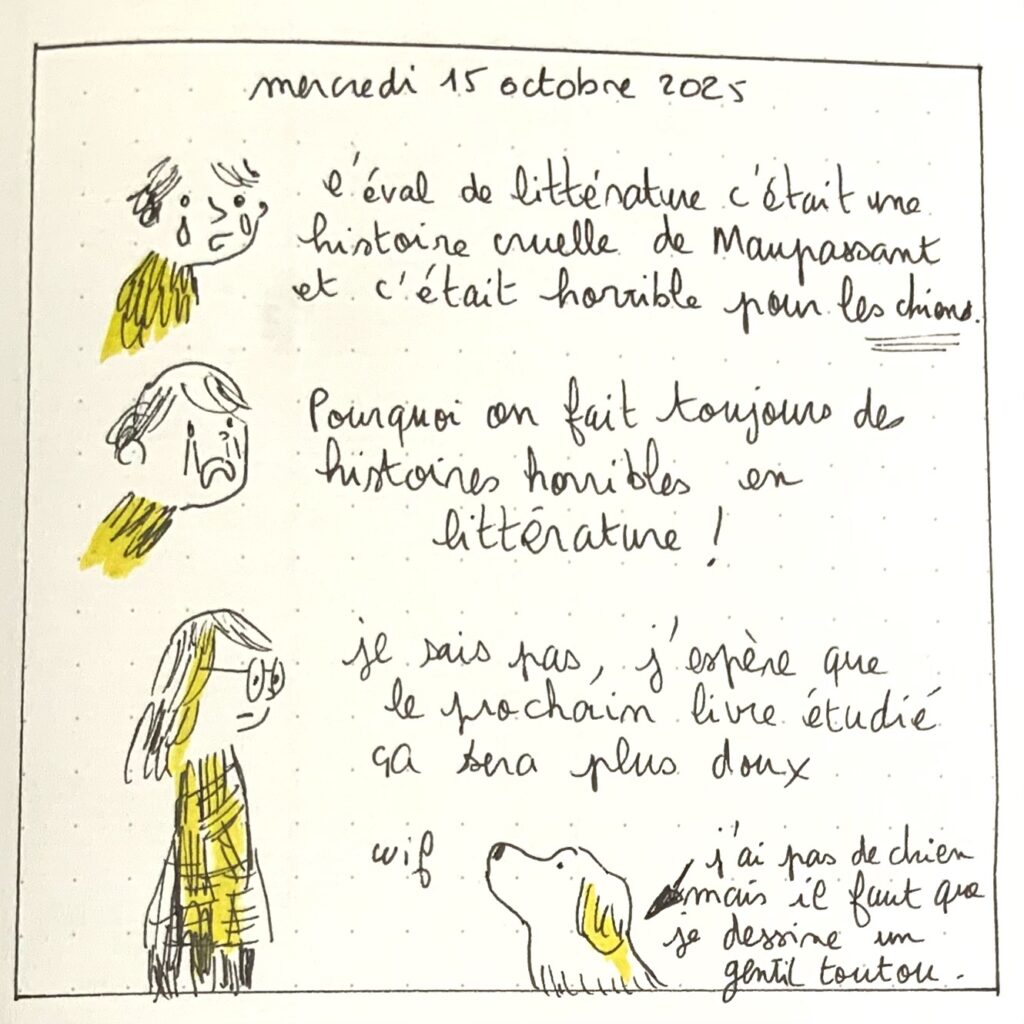 mercredi 15 octobre 2025
l'éval de littérature c'était une
histoire cruelle de Maupassant
et c'était horrible pour les chiens.
Pourquoi on fait toujours des
histoires horribles en
littérature !
je sais pas, j'espère que
le prochain livre étudié
ça sera plus doux
wif
j'ai pas de chien
mais il faut que
je dessine un
gentil toutou.